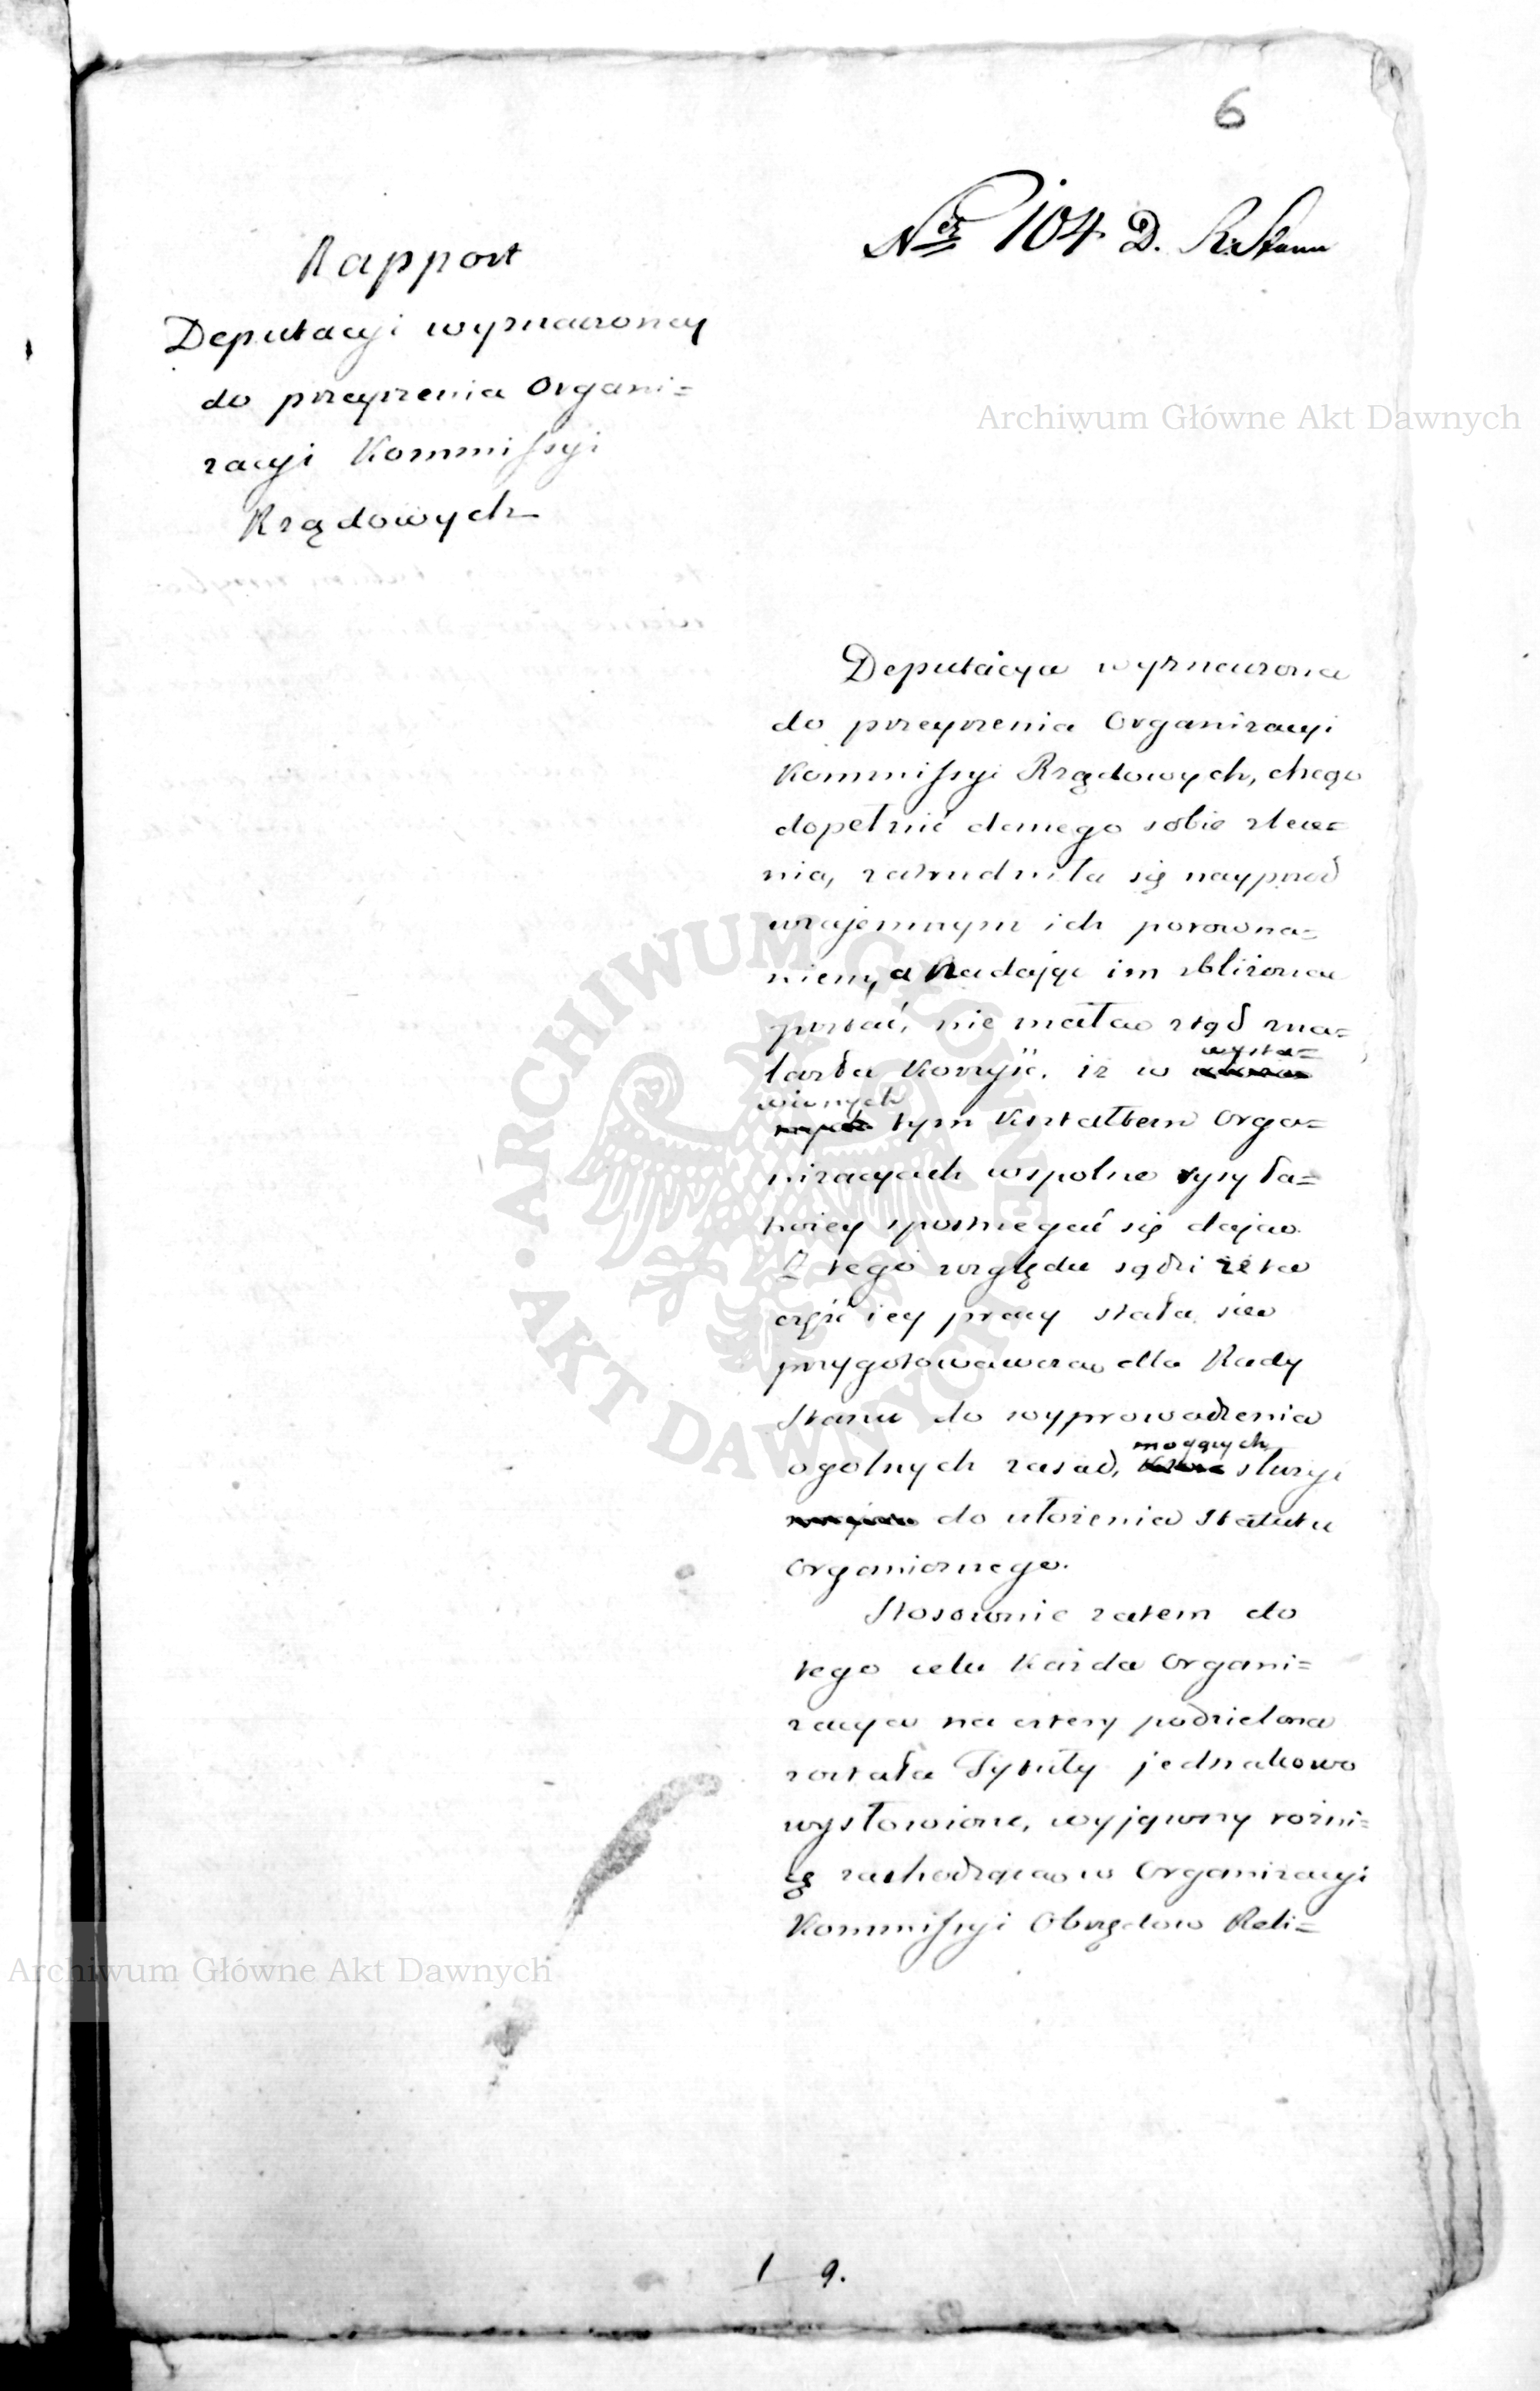 6
Nr 104 D. R. Stanu
Rapport
Deputacyi wyznaczoney
do przeyrzenia Organi=
zacyi Kommissyi
Rządowych
Archiwum Główne Akt Dawnych
Deputacya wyznaczona
do przeyrzenia Organizacyi
Kommissyi Rządowych, chcąc
dopełnić danego sobie zlece=
nia, zatrudniła się nayprzod
wzajemnym ich porowna=
niem, a nadając im zbliżona
postać, nie małao ztąd zna=
lazła korzyść. iż w wysta=
wionych tym kształtem Orga=
nizacyach wspolne rysy ła=
twiey spostrzegać się dajao.
Z tego względu sądzi że ta
część iey pracy stała sie
przygotowawczao dla Rady
Stanu do wyprowadzenia
ogolnych zasad, mogących służyć
do ułożenia Statutu
Organicznego.
Stosownie zatem do
tego celu każda Organi=
zacya na cztery podzielona
została Tytuły jednakowo
wysłowione, wyjąwszy rożni=
cę zachodzącao w Organizacyi
Kommissyi Obrzędow Reli=
ARCHIWUM GŁÓWNE • AKT DAWNYCH •
Archiwum Główne Akt Dawnych
1 9.